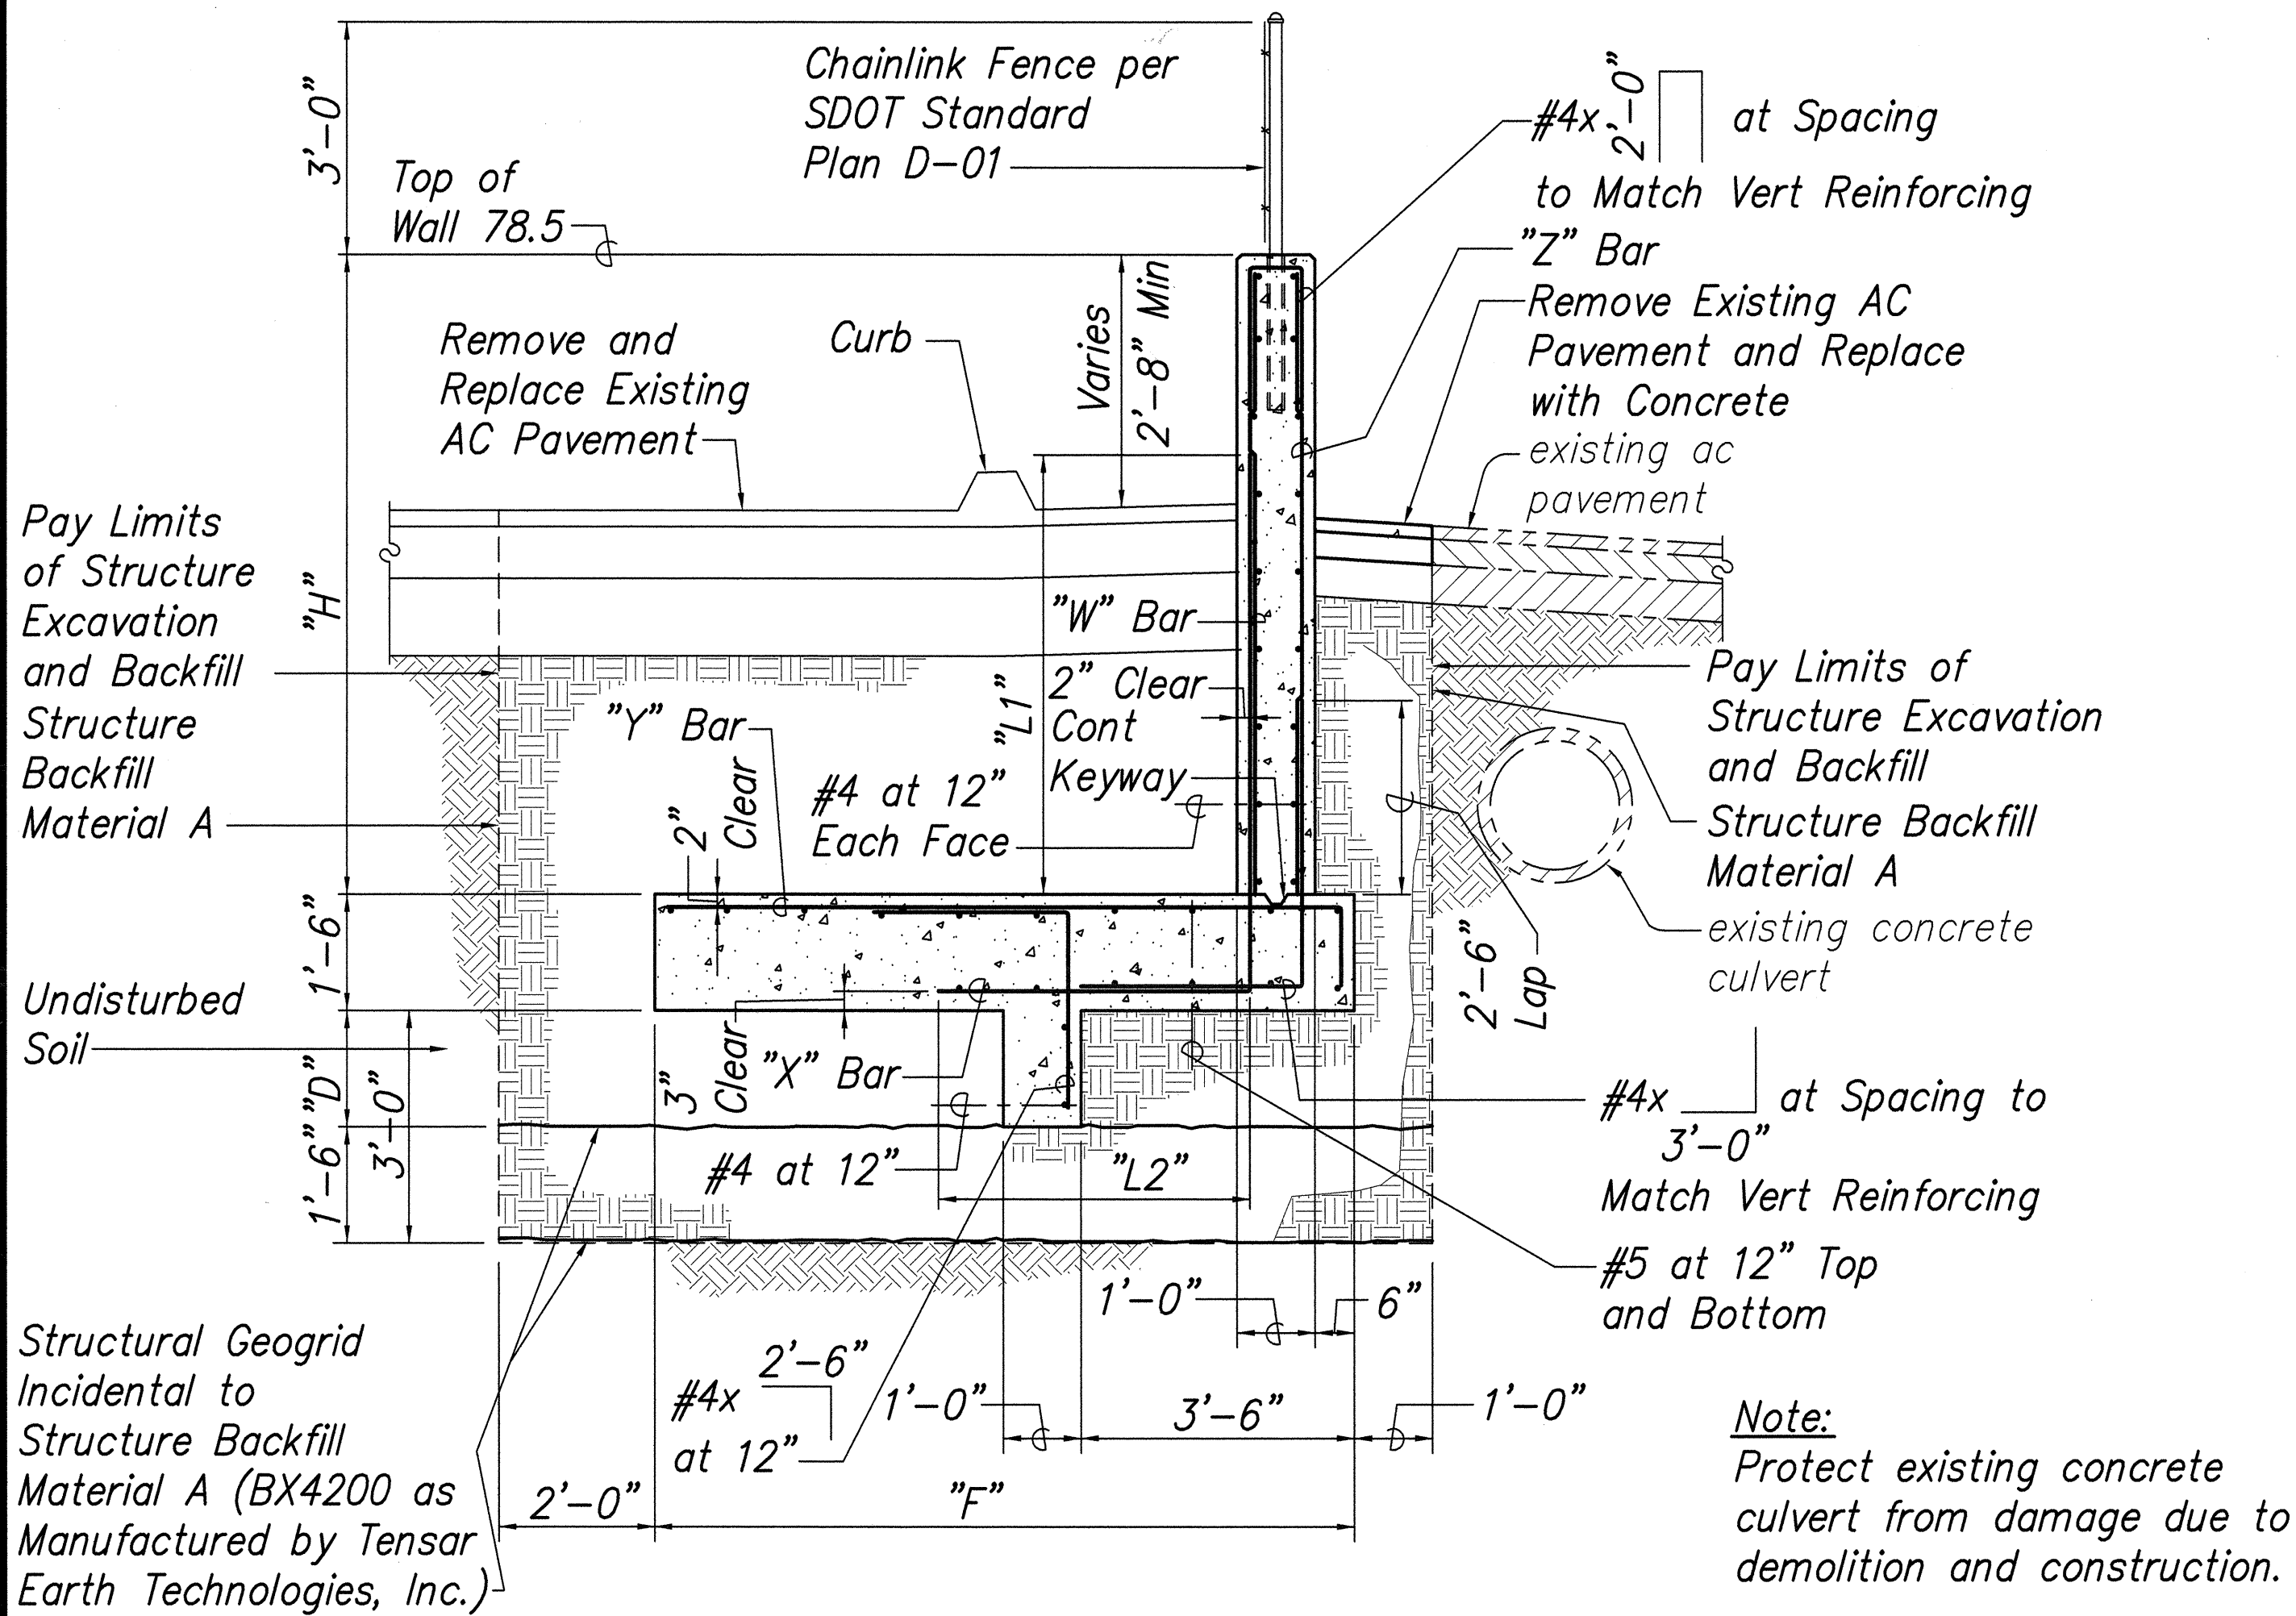 3'-0"
Chainlink Fence per
SDOT Standard
Plan D-01
#4x
2'-0"
at Spacing
to Match Vert Reinforcing
Top of
Wall 78.5
"Z" Bar
Remove Existing AC
Pavement and Replace
with Concrete
existing ac
pavement
Varies
2'-8" Min
Remove and
Replace Existing
AC Pavement
Curb
Pay Limits
of Structure
Excavation
and Backfill
Structure
Backfill
Material A
"H"
"W" Bar
2" Clear
Cont
Keyway
"L1"
"Y" Bar
2"
Clear
#4 at 12"
Each Face
Pay Limits of
Structure Excavation
and Backfill
Structure Backfill
Material A
existing concrete
culvert
1'-6"
2'-6"
Lap
Undisturbed
Soil
"D"
1'-6"
3'-0"
3"
Clear
"X" Bar
#4 at 12"
"L2"
#4x
at Spacing to
3'-0"
Match Vert Reinforcing
#5 at 12" Top
and Bottom
1'-0"
6"
Structural Geogrid
Incidental to
Structure Backfill
Material A (BX4200 as
Manufactured by Tensar
Earth Technologies, Inc.)
2'-6"
#4x
at 12"
1'-0"
3'-6"
1'-0"
2'-0"
"F"
Note:
Protect existing concrete
culvert from damage due to
demolition and construction.